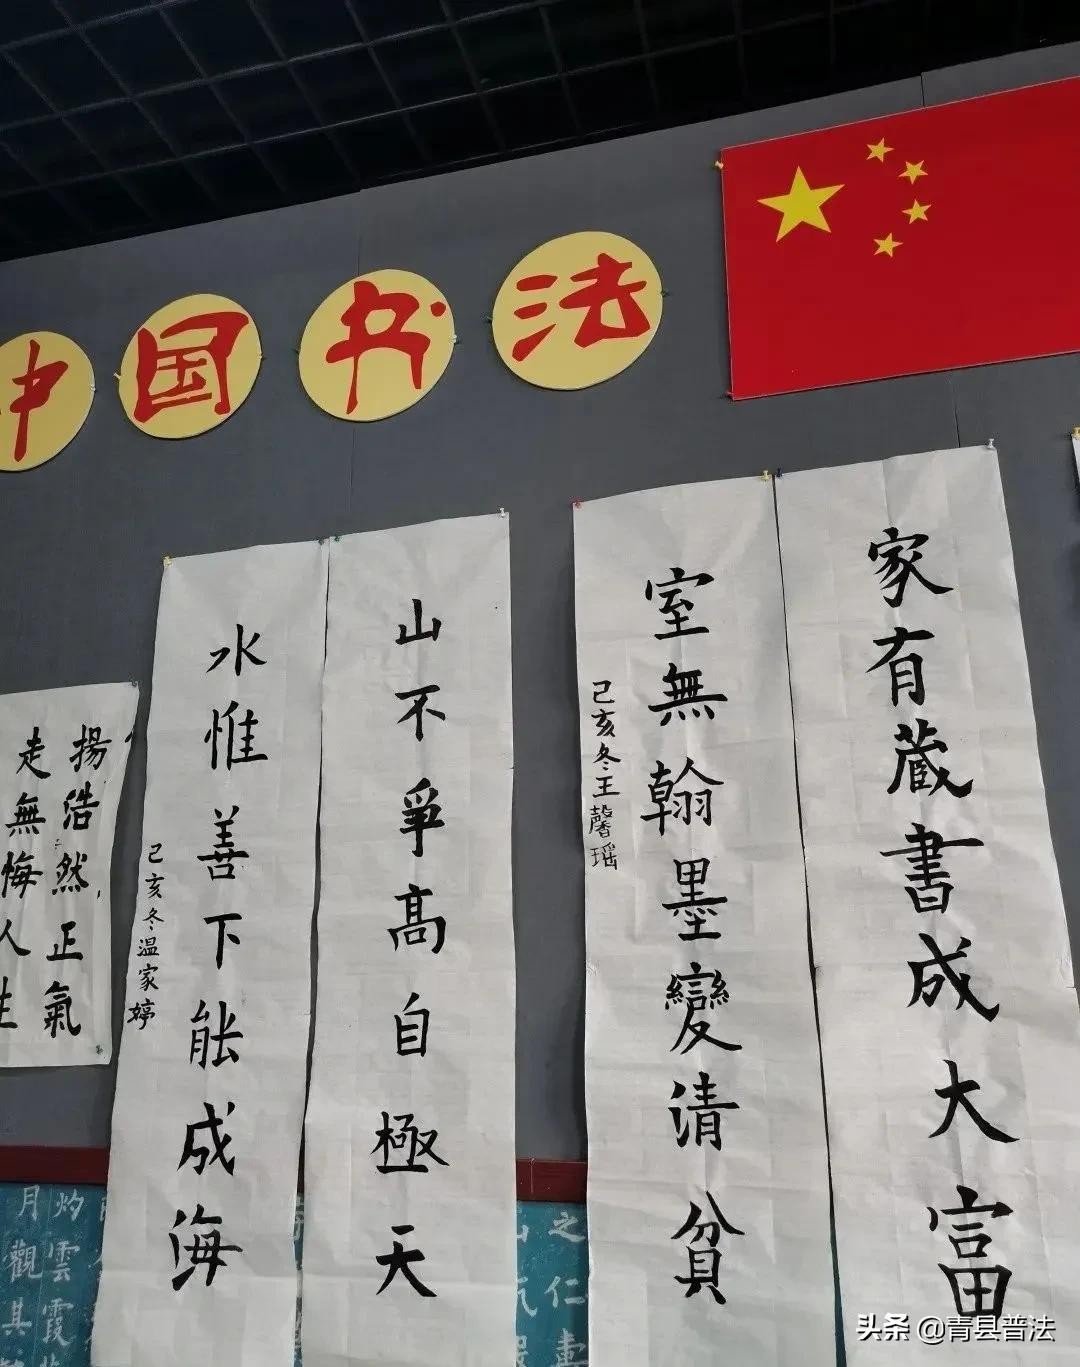 中国书法
家有蔵書成大富
室無翰墨變清貧
己亥冬王馨瑶
山不爭高自極天
水惟善下能成海
己亥冬温家婷
揚浩然正氣
走無悔人生
之仁
灼雲霞
月觀其
头条 @青县普法